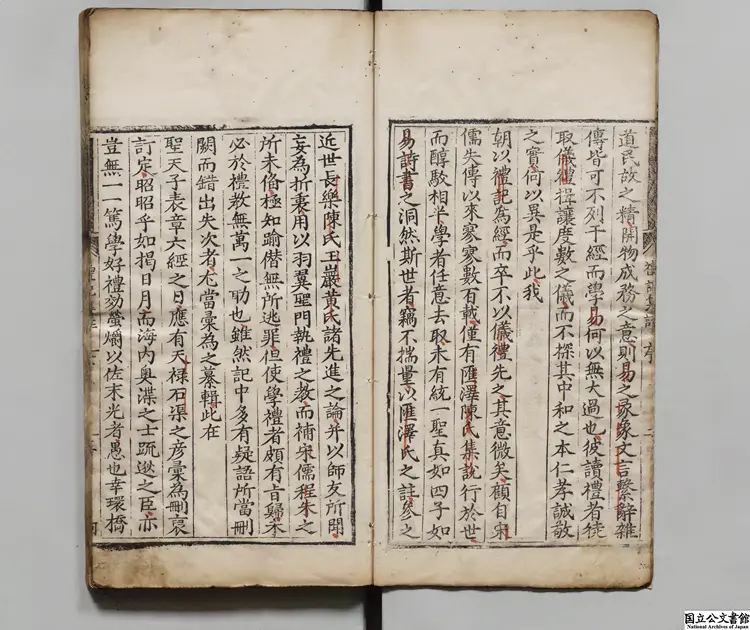 道民故之精開物成務之意則易之彖象文言繫辭雜
傳皆可不列于經而學易何以無大過也彼讀禮者徒
取儀禮揖讓度數之儀而不探其中和之本仁孝誠敬
之實何以異是乎此我
朝以禮記為經而卒不以儀禮先之其意微矣顧自宋
儒失傳以來寥寥數有載僅有匯澤陳氏集說行於世
而醇駁相半學者任意去取未有統一聖真如四子如
易詩書之洞然斯世者竊不揣量以匯澤氏之註參之
近世長樂陳氏玉巖黃氏諸先進之論并以師友所聞
妄為折衷用以羽翼聖門執禮之教而補宋儒程朱之
所未偹極知踰僭無所逃罪但使學禮者頗有旨歸本
必於禮教無萬一之助也雖然記中多有疑語所當刪
闕而錯出失次者尤當彙為之纂輯此在
聖天子表章六經之日應有天禄石渠之彦彙為刪裒
訂定昭昭乎如揭日月而海内奥渫之士疏逖之臣亦
豈無一一篤學好禮効螢爝以佐末光者愚也幸環橋
禮記集說 序
二
国立公文書館
National Archives of Japan